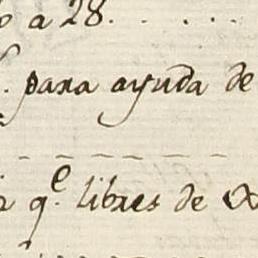 a 28. . . . . .
para ayuda de
q.e libres de